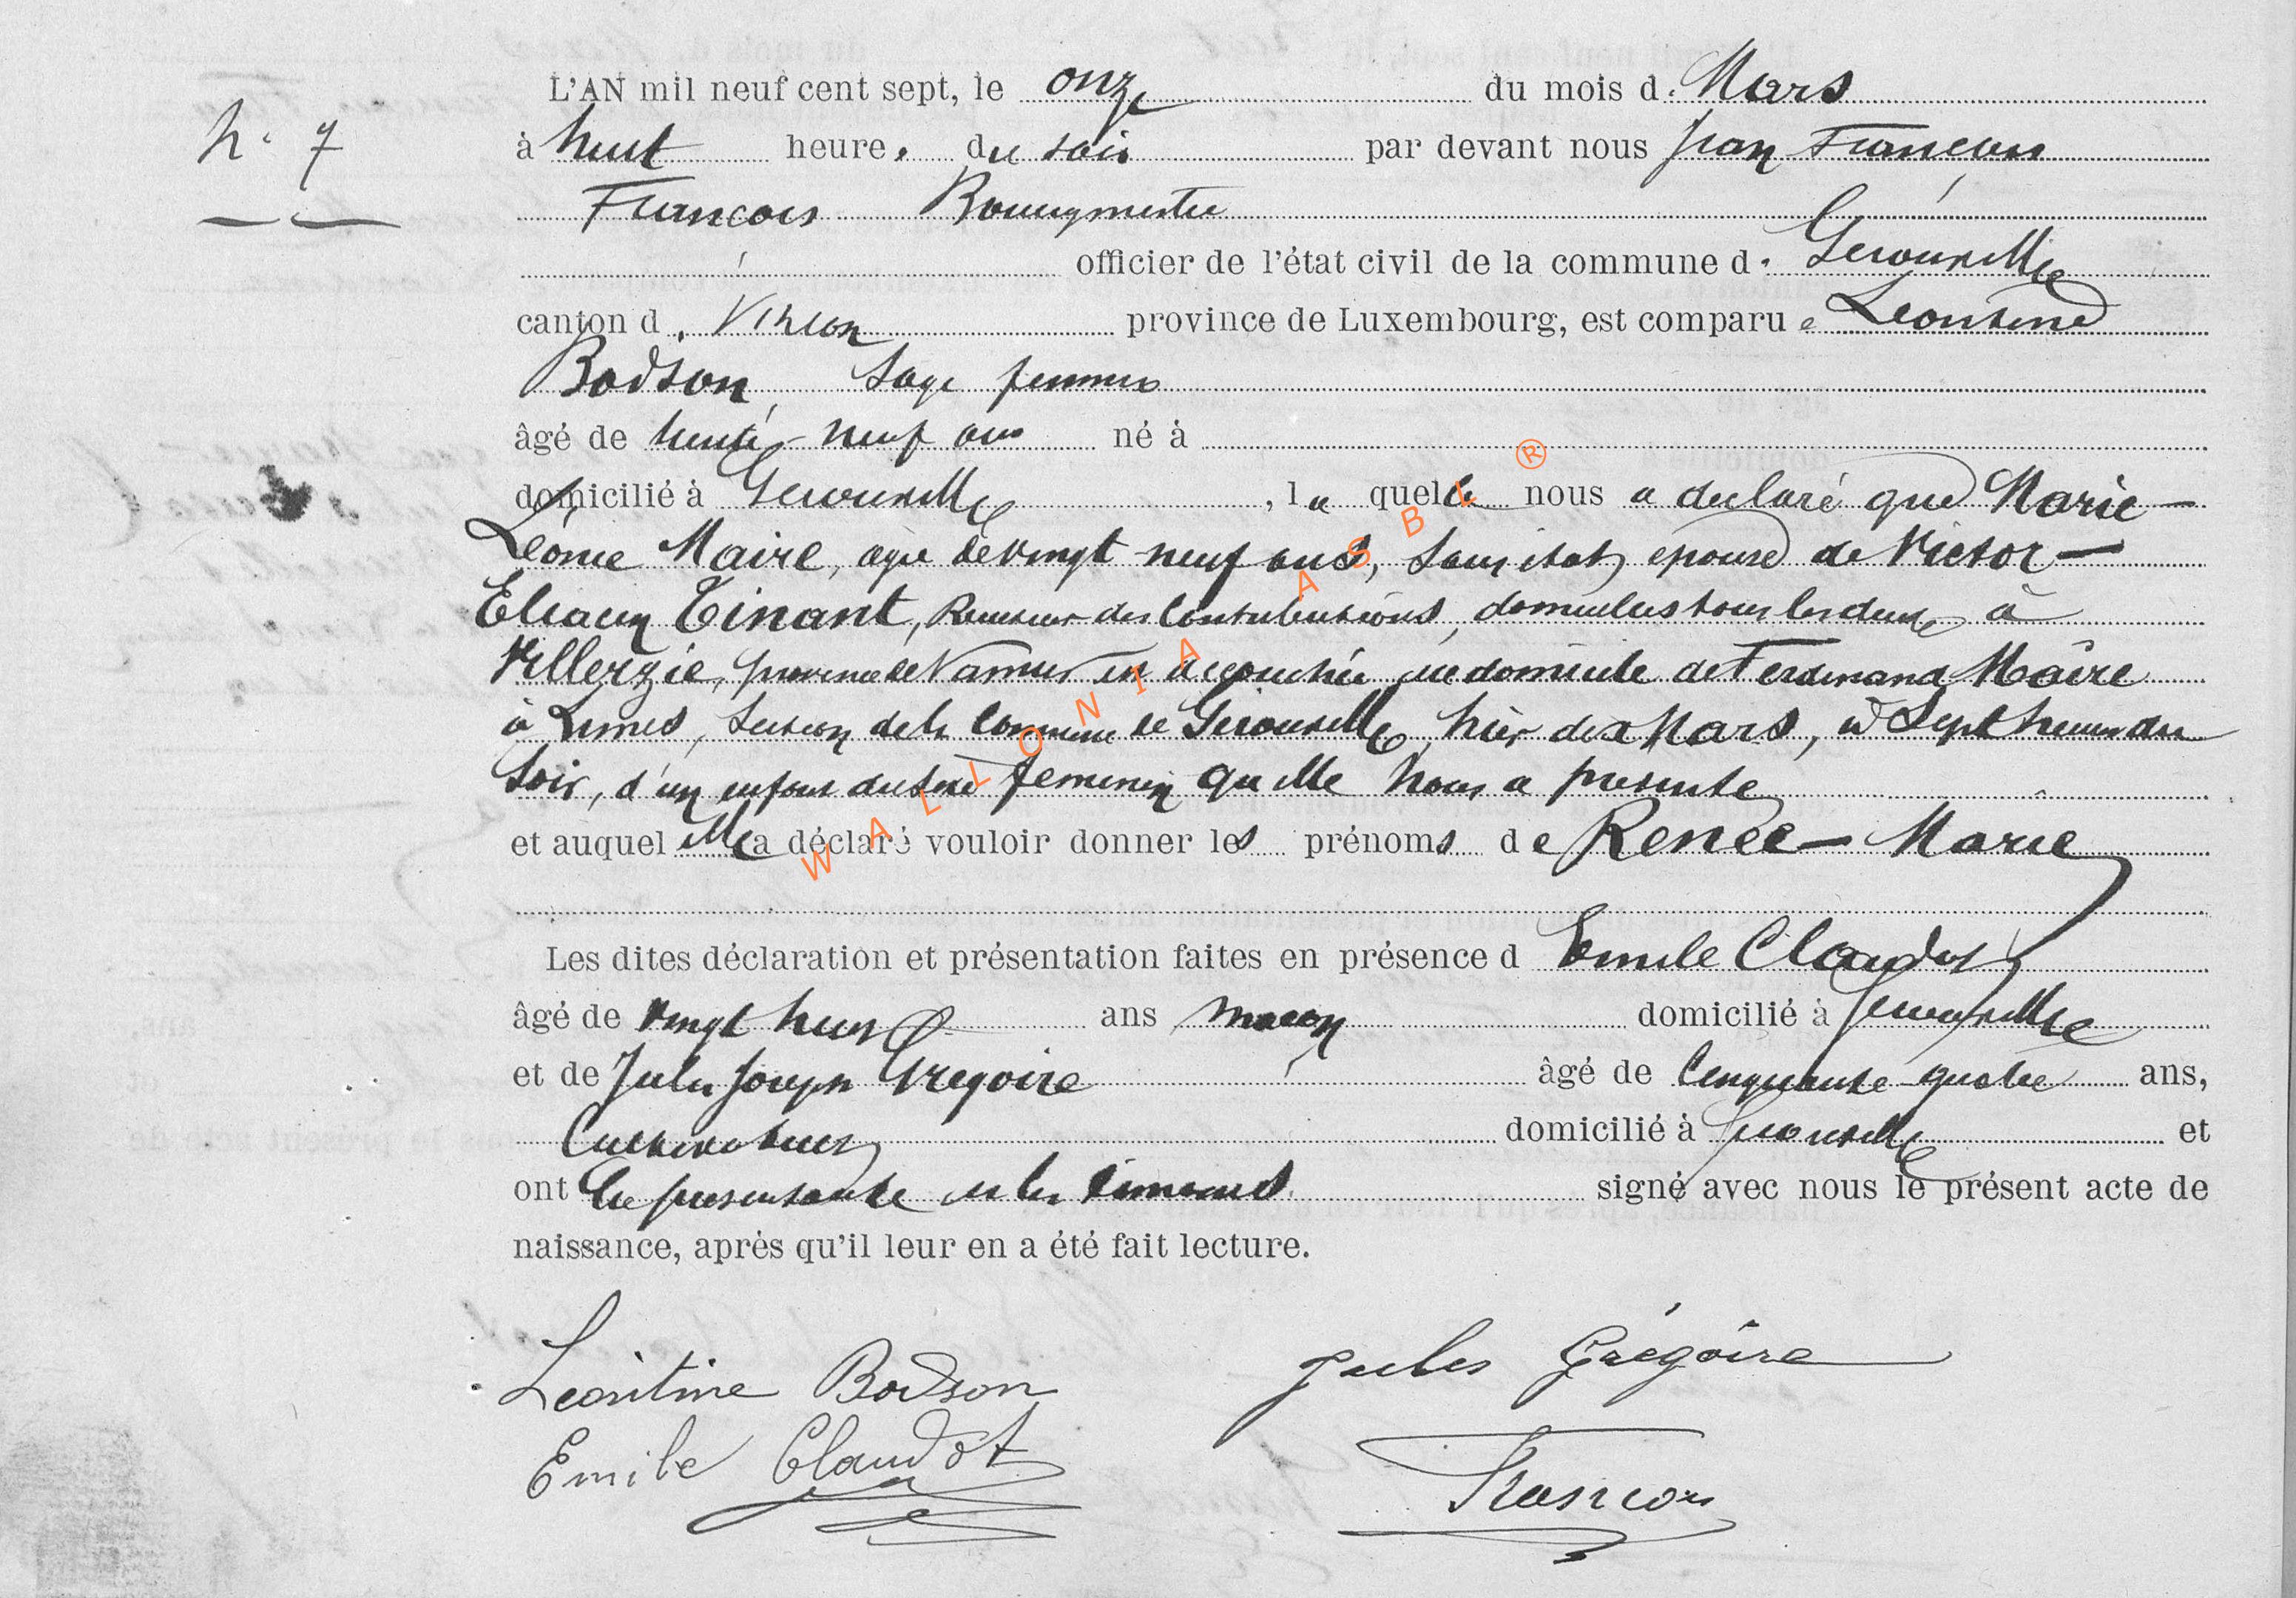 L'AN mil neuf cent sept, le onze du mois de Mars
n° 7
à huit heures du soir par devant nous Jean François
François Bourgmestre
officier de l'état civil de la commune de Gérouville
canton de Virton province de Luxembourg, est comparue Léontine
Bodson, sage femme
âgé de trente-neuf ans né à
domicilié à Gérouville, laquelle nous a déclaré que Marie-
Léonie Maire, agée de vingt-neuf ans, sans état, épouse de Victor-
Eliacin Tinant, Receveur des Contributions, domiciliés tous les deux à
Villerzie, province de Namur est accouchée au domicile de Ferdinand Maire
à Limes, section de la commune de Gérouville, hier dix Mars, à sept heures du
soir, d'un enfant du sexe féminin qu'elle nous a présenté
et auquel elle a déclaré vouloir donner les prénoms de Renée-Marie
Les dites déclaration et présentation faites en présence d Emile Claudot
âgé de vingt huit ans maçon domicilié à Gérouville
et de Jules Joseph Grégoire âgé de cinquante quatre ans,
Cultivateur domicilié à Gérouville et
ont la présentante et les témoins signé avec nous le présent acte de
naissance, après qu'il leur en a été fait lecture.
Léontine Bodson Jules Grégoire
Emile Claudot François
WALLONIA ASBL ®